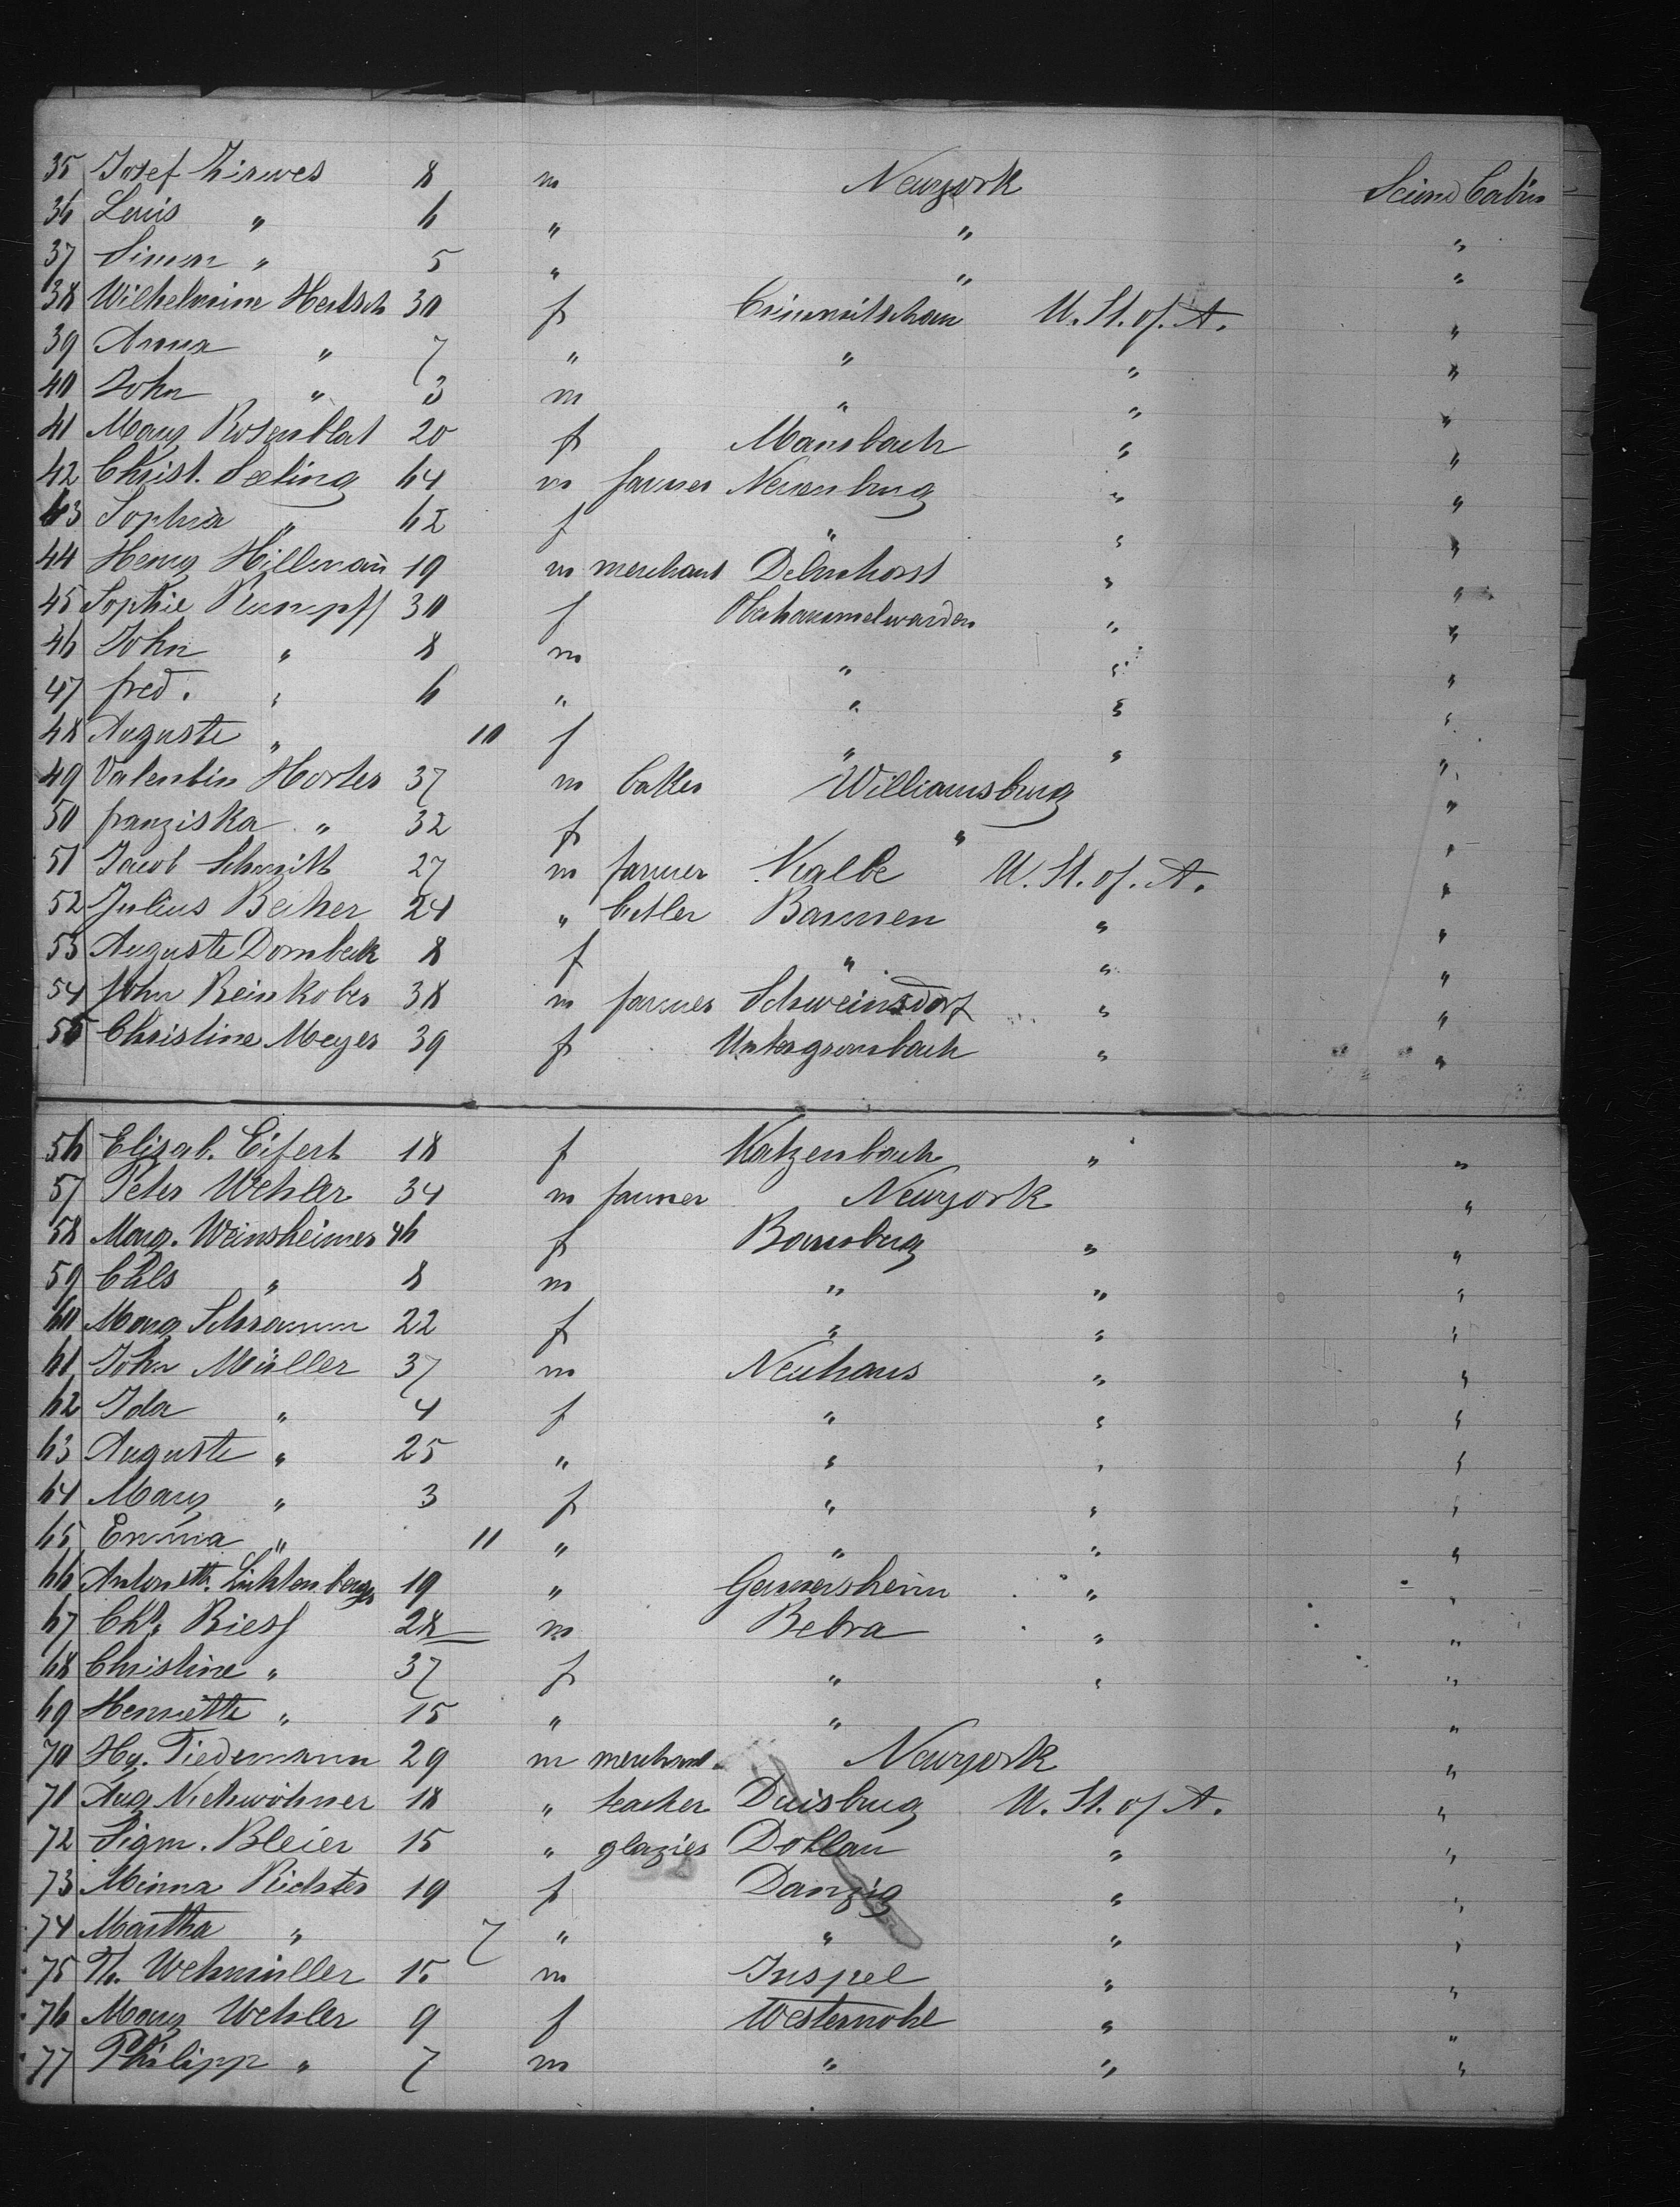 35 Josef Zirwes 8 m Newyork Second Cabin
36 Louis " 6 " " "
37 Simon " 5 " " "
38 Wilhelmine Hertsch 30 f Crimmitschau U. St. of. A. "
39 Anna " 7 " " " "
40 John " 3 m " " "
41 Mary Rosenblat 20 f Mansbach " "
42 Christ. Seeling 64 m farmer Neuenburg " "
43 Sophia " 62 f " " "
44 Henry Hillmann 19 m merchant Delmhorst " "
45 Sophie Rumpff 30 f Oberhammelwarden " "
46 John " 8 m " " "
47 fred. " 6 " " " "
48 Auguste " 10 f " " "
49 Valentin Horter 37 m baker Williamsburg "
50 franziska " 32 f " "
51 Jacob Schmitt 27 m farmer Kalbe U. St. of. A. "
52 Julius Becker 24 " butler Barmen " "
53 Auguste Dornbeck 8 f " " "
54 John Reinkober 38 m farmer Schweinsdorf " "
55 Christine Meyer 39 f Untergrombach " "
56 Elisab. Eifert 18 f Katzenbach " "
57 Peter Wehler 34 m farmer Newyork "
58 Marg. Weinsheimer 46 f Bamberg " "
59 Chls " 8 m " " "
60 Marg Schramm 22 f " " "
61 John Müller 37 m Neuhaus " "
62 Ida " 4 f " " "
63 Auguste " 25 " " " "
64 Mary " 3 f " " "
65 Emma " 11 " " " "
66 Antonett. Lichtenberger 19 " Germersheim " "
67 Chr. Riess 28 m Bebra " "
68 Christine " 37 f " " "
69 Henriette " 15 " " "
70 Hy. Tiedemann 29 m merchant Newyork "
71 Aug Vichwöhner 18 " teacher Duisburg U. St. of A. "
72 Sigm. Bleier 15 " glazier Dollau " "
73 Minna Richter 19 f Danzig " "
74 Martha " 7 " " " "
75 Th. Wehmüller 15 m Juspel " "
76 Mary Wehler 9 f Westernohe " "
77 Philipp " 7 m " " "